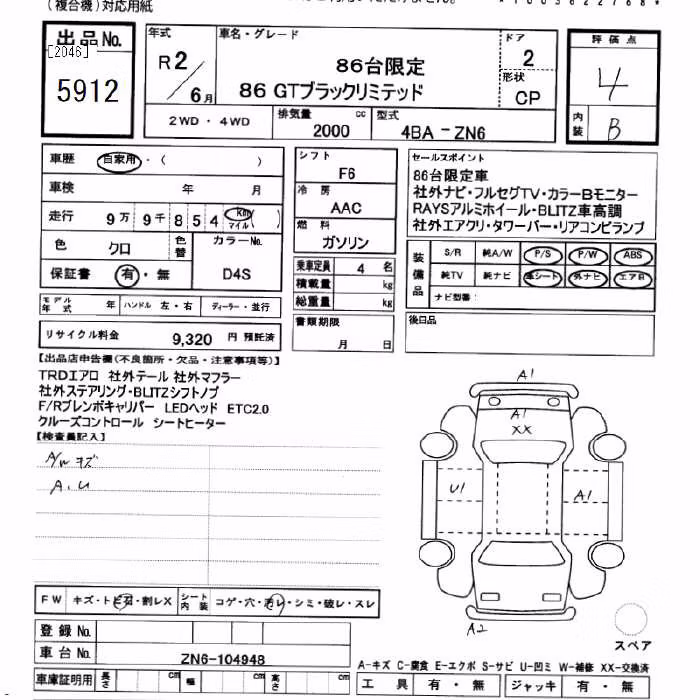 (複合機)対応用紙
出品No.
[2046]
5912
年式
R2/6月
車名・グレード
86台限定
86 GTブラックリミテッド
ドア
2
形状
CP
2WD・4WD
排気量
2000
cc
型式
4BA-ZN6
評価点
4
内装
B
車歴
自家用・( )
車検
年 月
走行
9万9千854
Km
マイル
( )
色
クロ
色替
カラーNo.
D4S
保証書
有・無
モデル年式
年
ハンドル 左・右
ディーラー・並行
リサイクル料金 9,320 円 預託済
シフト
F6
冷房
AAC
燃料
ガソリン
乗車定員 4 名
積載量 kg
総重量 kg
書類期限
月 日
セールスポイント
86台限定車
社外ナビ・フルセグTV・カラーBモニター
RAYSアルミホイール・BLITZ車高調
社外エアクリ・タワーバー・リアコンビランプ
装備品
S/R 純A/W P/S P/W ABS
純TV 純ナビ 革シート 外ナビ エアB
ナビ型番:
後日品
【出品店申告欄(不良箇所・欠品・注意事項等)】
TRDエアロ 社外テール 社外マフラー
社外ステアリング・BLITZシフトノブ
F/Rブレンボキャリパー LEDヘッド ETC2.0
クルーズコントロール シートヒーター
【検査員記入】
A/W キズ
A.U
A1
A1
XX
U1
A1
A2
スペア
FW
キズ・トビ石・割レX
シート内装
コゲ・穴・汚レ・シミ・破レ・スレ
登録No.
車台No.
ZN6-104948
車庫証明用
長さ cm
幅 cm
高さ cm
A-キズ C-腐食 E-エクボ S-サビ U-凹ミ W-補修 XX-交換済
工具 有・無
ジャッキ 有・無